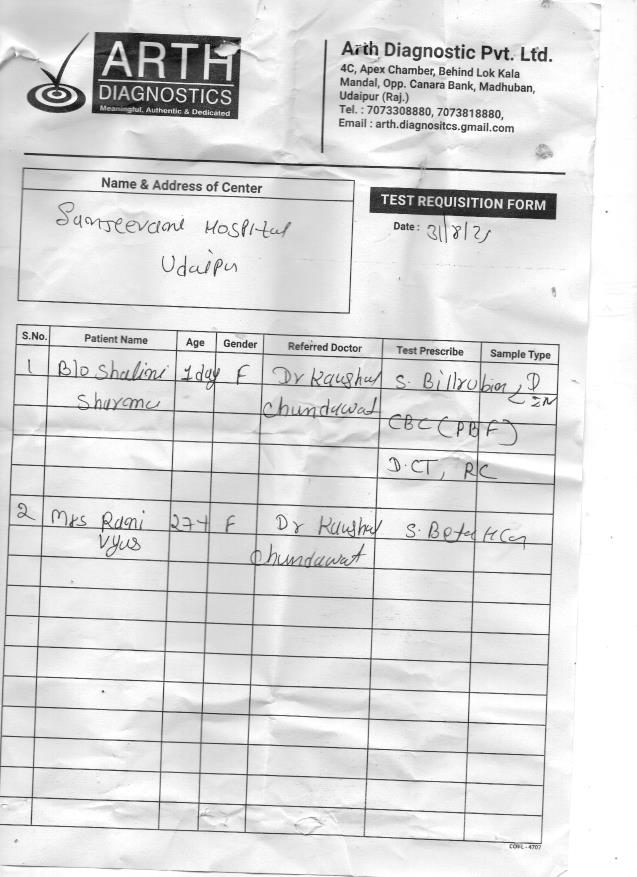 ARTH
DIAGNOSTICS
Meaningful, Authentic & Dedicated
Arth Diagnostic Pvt. Ltd.
4C, Apex Chamber, Behind Lok Kala
Mandal, Opp. Canara Bank, Madhuban,
Udaipur (Raj.)
Tel. : 7073308880, 7073818880,
Email : arth.diagnositcs.gmail.com
Name & Address of Center
Sanjeevani Hospital
Udaipur
TEST REQUISITION FORM
Date : 31/8/25
S.No. Patient Name Age Gender Referred Doctor Test Prescribe Sample Type
1 B/o Shalini 1day F Dr Kaushal S. Billrubin D
Sharma Chundawat IN
CBC (PBF)
D.CT, RC
2 Mrs Rani 27 F Dr Kaushal S. Beta HCG
Vyas Chundawat